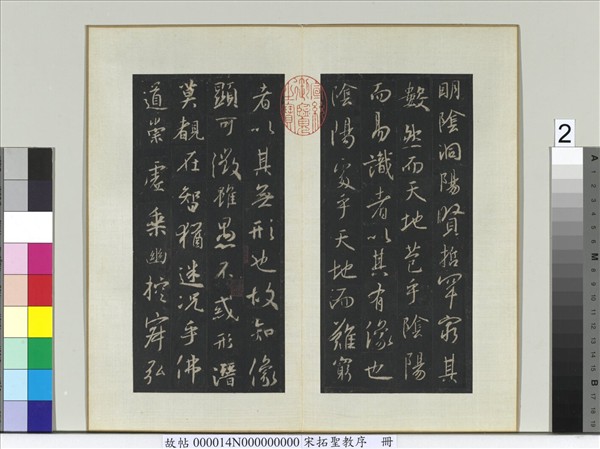 明陰洞陽賢哲罕窮其
數然而天地苞乎陰陽
而易識者以其有像也
陰陽處乎天地而難窮
者以其無形也故知像
顯可徵雖愚不惑形潛
莫覩在智猶迷况乎佛
道崇虛乘幽控寂弘
宣統御覽之寶
2
故帖 000014N000000000 宋拓聖教序 冊